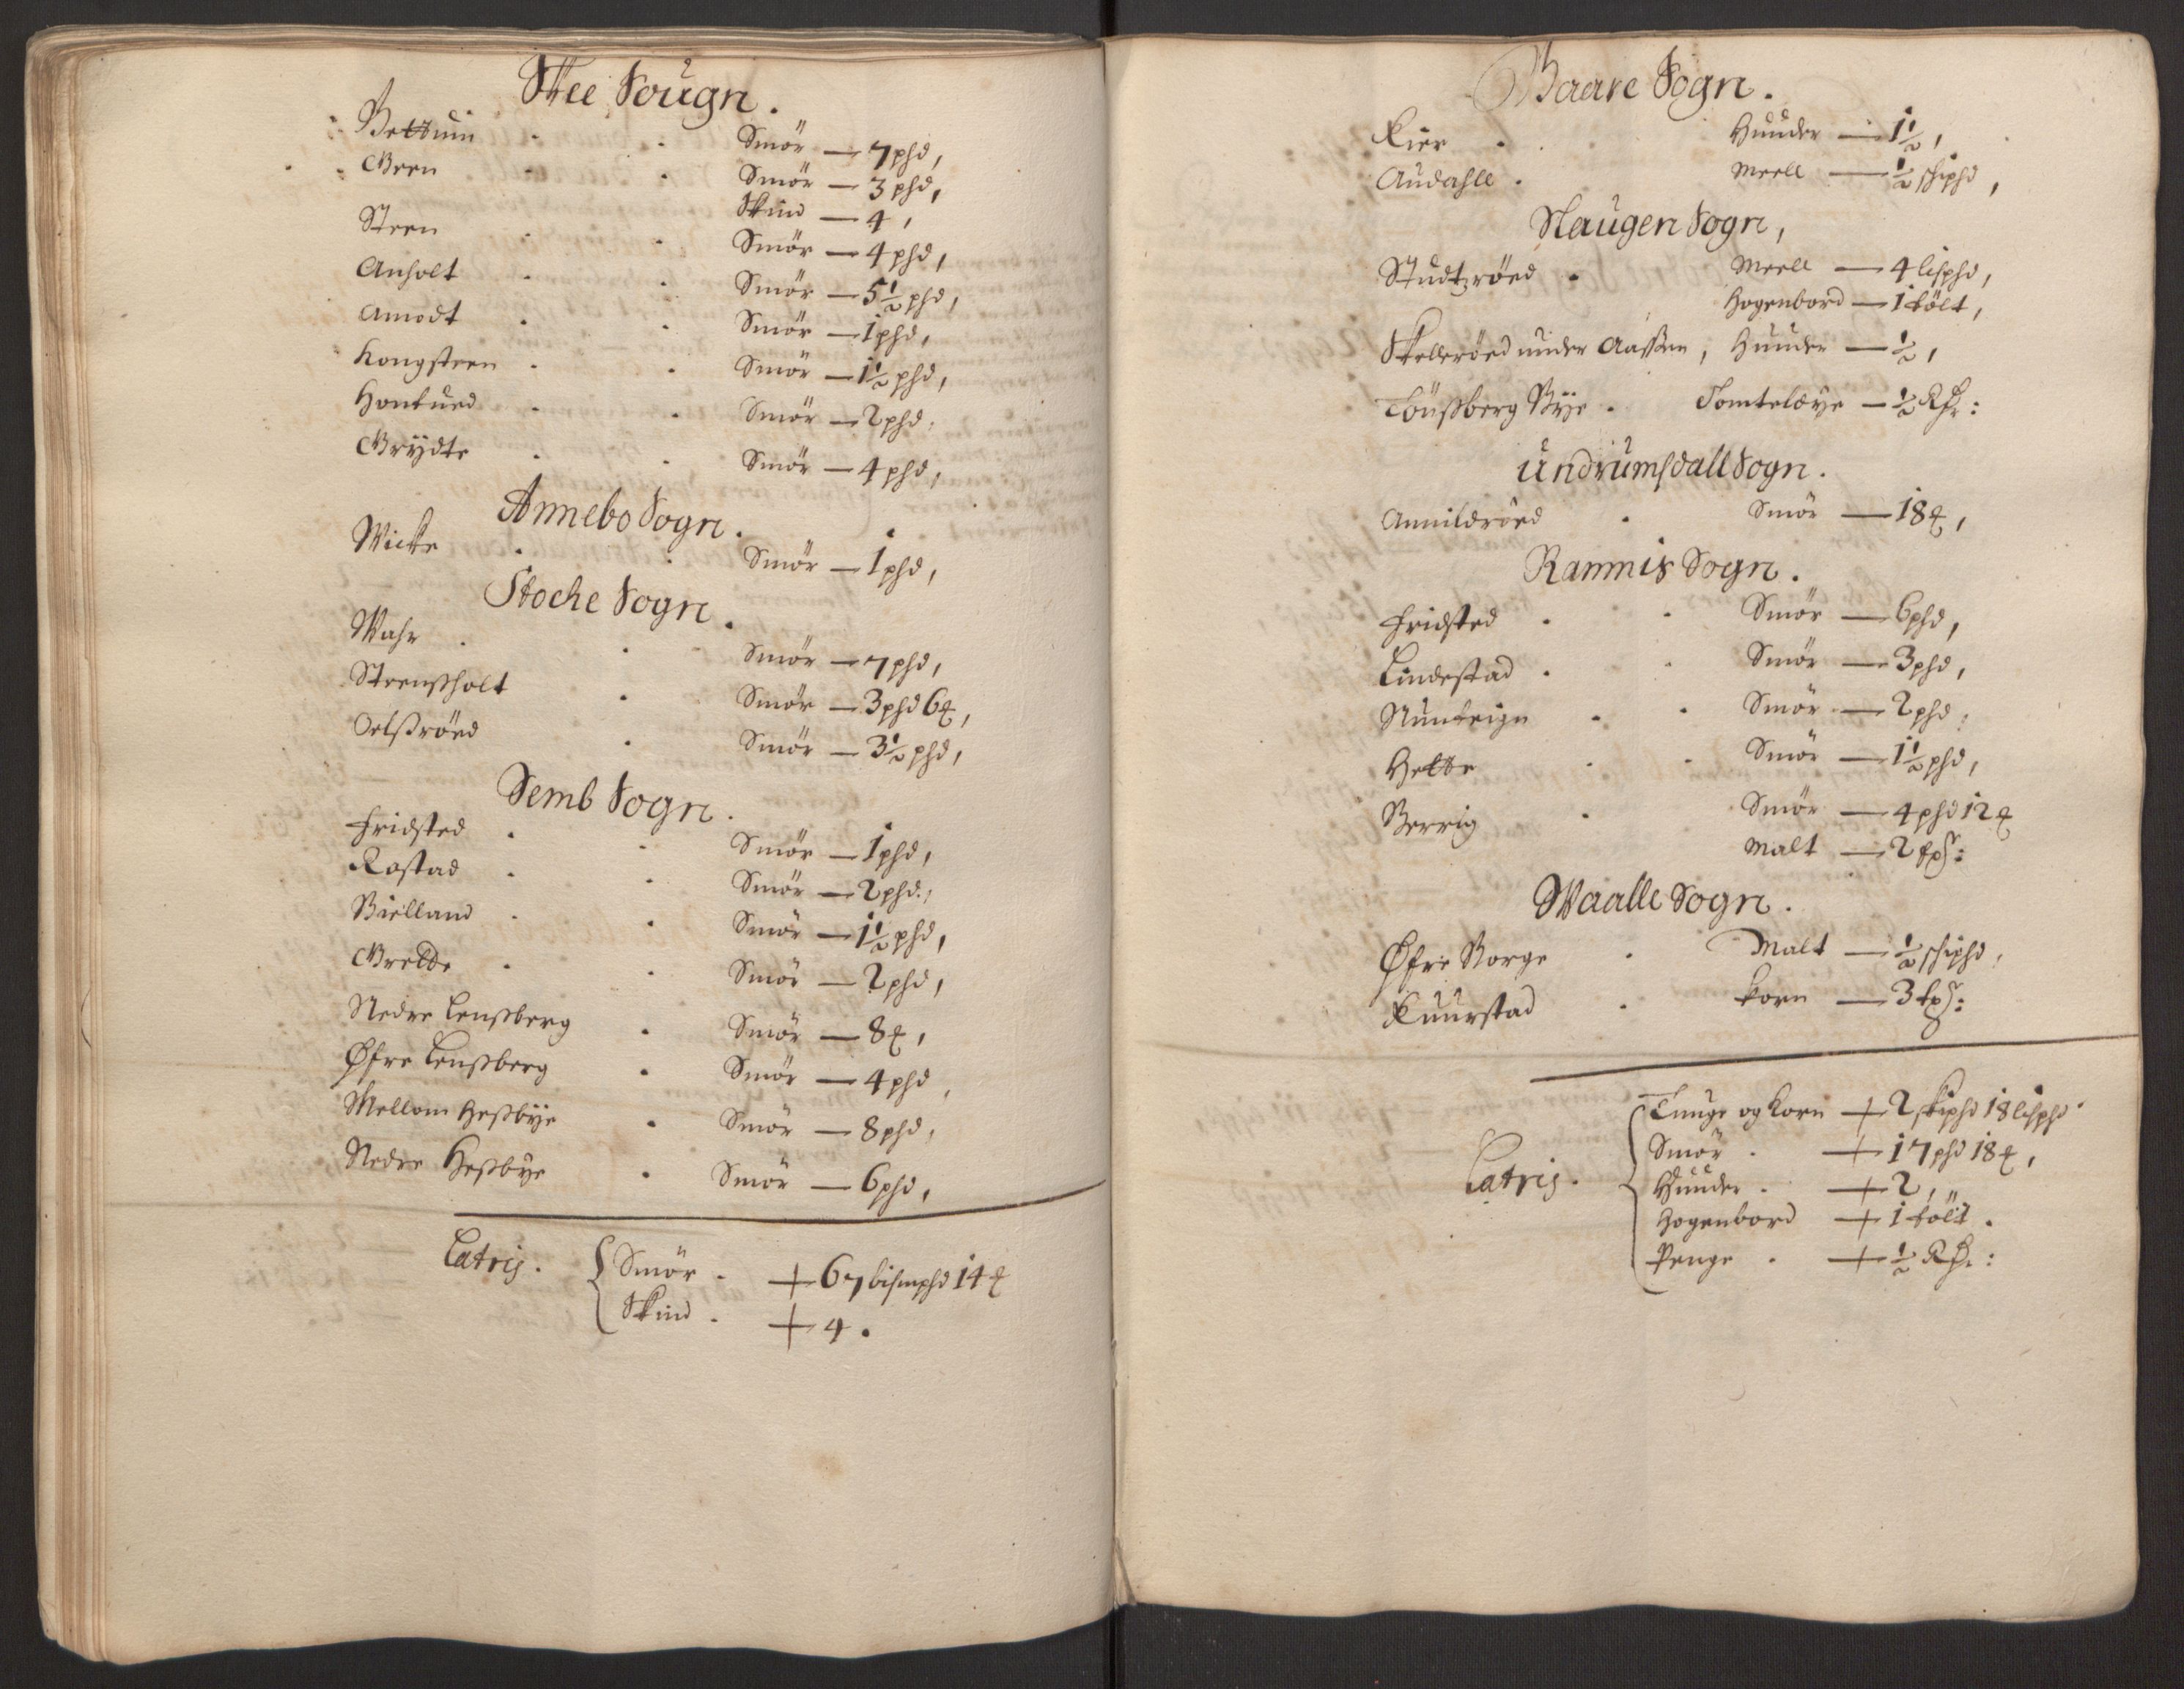 Skee Sougn.
Bettum . . Smör — 7 phd,
Green . . Smör — 3 phd,
Skind — 4,
Steen . . Smör — 4 phd,
Anholt . . Smör — 5½ phd,
Amodt . . Smör — 1 phd,
Kongsteen . . Smör — 1½ phd,
Hontued . . Smör — 2 phd.
Grydte . . Smör — 4 phd,
Annebo Sogn.
Wicke . Smör — 1 phd,
Stoche Sogn.
Wahr . . Smör — 7 phd,
Strenssholt . Smör — 3 phd 6 ℔,
Oelssröed . Smör — 3½ phd,
Semb Sogn.
Fridsted . . Smör — 1 phd,
Rostad . . Smör — 2 phd.,
Bielland . . Smör — 1½ phd,
Gretde . . Smör — 2 phd,
Nedre Lenssberg . Smör — 8 ℔,
Øfre Lenssberg . Smör — 4 phd,
Mellom Hessbye . Smör — 8 phd,
Nedre Hessbye . Smör — 6 phd,
Latris. Smör . + 67 bismphd 14 ℔
Skind . + 4.
Baare Sogn.
Kier . Huuder — 1½,
Audahll . Meell — ½ schiphd,
Slaugen Sogn,
Studtzröed . Meell — 4 lisphd,
Hogenbord — 1 tölt,
Skelleröed under Aassen, Huuder — ½,
Tönssberg Bye . Tomteløye — ½ Rdr:
Undrumsdall Sogn.
Annildröed . Smör — 18 ℔,
Ramnis Sogn.
Fridsted . . Smör — 6 phd,
Lindestad . . Smör — 3 phd,
Nunteign . . Smör — 2 phd,
Hette . . Smör — 1½ phd,
Berrig . Smör — 4 phd 12 ℔
Malt — 2 spr:
Waalle Sogn.
Øfre Borge . Malt — ½ schiphd,
Kuurstad . Korn — 3 spr:
Latris. Tunge og Korn + 2 skiphd 18 lisphd
Smör . + 17 phd 18 ℔,
Huuder . + 2,
Hogenbord + 1 tölt.
Penge . + ½ Rdr: